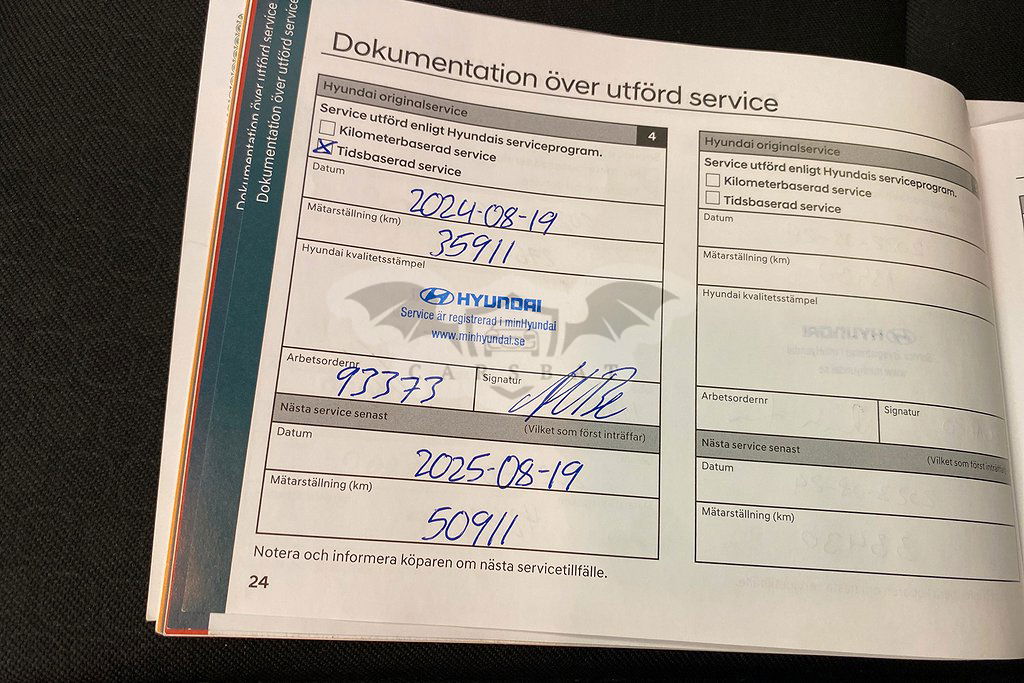 Dokumentation över utförd service
Dokumentation över utförd service
Dokumentation över utförd service
Hyundai originalservice
4
Service utförd enligt Hyundais serviceprogram.
Kilometerbaserad service
Tidsbaserad service
Datum
2024-08-19
Mätarställning (km)
35911
Hyundai kvalitetsstämpel
HYUNDAI
Service är registrerad i minHyundai
www.minhyundai.se
CARSBAT
Arbetsordernr
93373
Signatur
Nästa service senast
(Vilket som först inträffar)
Datum
2025-08-19
Mätarställning (km)
50911
Notera och informera köparen om nästa servicetillfälle.
24
Hyundai originalservice
Service utförd enligt Hyundais serviceprogram.
Kilometerbaserad service
Tidsbaserad service
Datum
Mätarställning (km)
Hyundai kvalitetsstämpel
Arbetsordernr
Signatur
Nästa service senast
(Vilket som först inträffar)
Datum
Mätarställning (km)